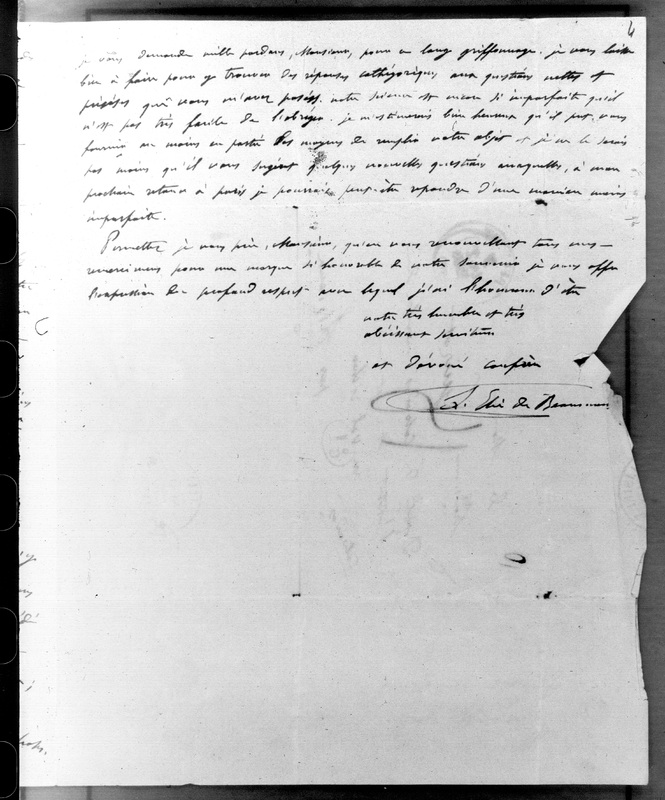 4
je vous demande mille pardons, Monsieur, pour ce long griffonnage. je vous laisse
bien à faire pour y trouver des réponses cathégoriques aux questions nettes et
précises que vous m'avez posées. notre science est encore si imparfaite qu'il
n'est pas très facile de l'abréger. je m'estimerais bien heureux qu'il put vous
fournir au moins en partie les moyens de remplir votre objet et je ne le serais
pas moins qu'il vous suggérat quelques nouvelles questions auxquelles, à mon
prochain retour à paris je pourrais peut-être repondre d'une manière moins
imparfaite.
Permettez je vous prie, Monsieur, qu'en vous renouvellant tous mes
remerciemens pour une marque si honorable de votre souvenir je vous offre
l'expression du profond respect avec lequel j'ai l'honneur d'être
votre très humble et très
obéissant serviteur
et dévoué confrère
L. Elie de Beaumont